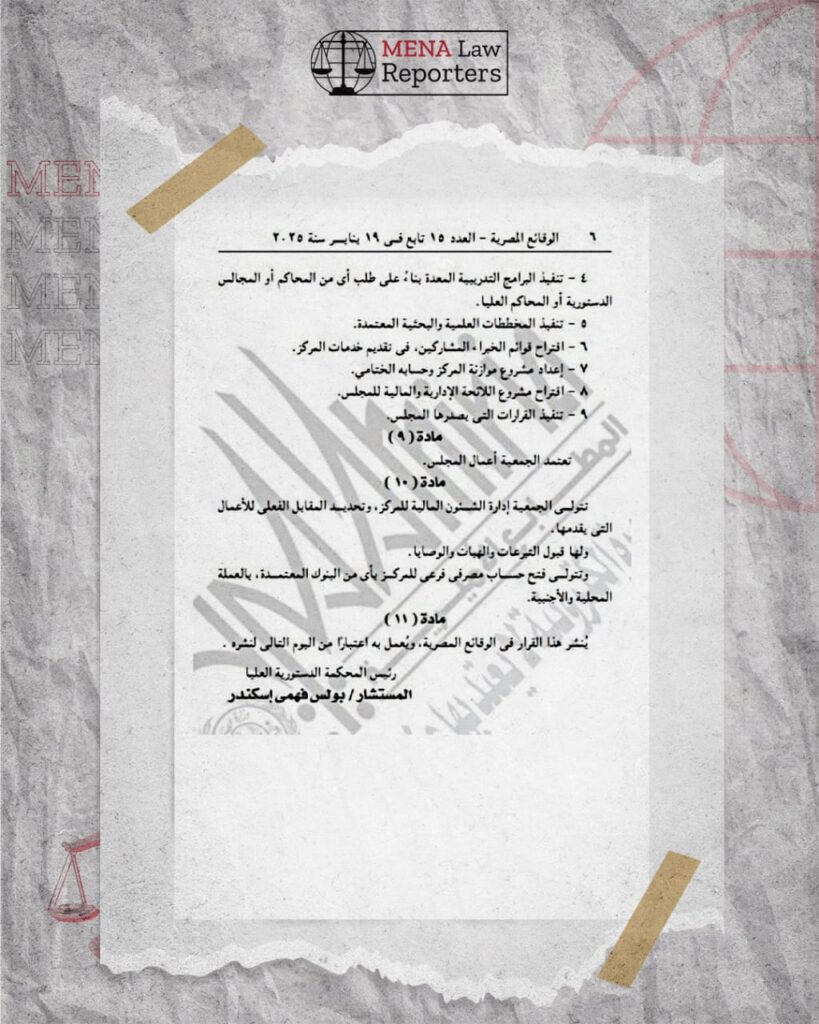 MENA Law
Reporters
MEN
MEN
MEN
MEN
٦ الوقائع المصرية – العدد ١٥ تابع فى ١٩ يناير سنة ٢٠٢٥
٤ – تنفيذ البرامج التدريبية المعدة بناءً على طلب أى من المحاكم أو المجالس
الدستورية أو المحاكم العليا.
٥ – تنفيذ المخططات العلمية والبحثية المعتمدة.
٦ – اقتراح قوائم الخبراء المشاركين، فى تقديم خدمات المركز.
٧ – إعداد مشروع موازنة المركز وحسابه الختامي.
٨ – اقتراح مشروع اللائحة الإدارية والمالية للمجلس.
٩ – تنفيذ القرارات التى يصدرها المجلس.
مادة ( ٩ )
تعتمد الجمعية أعمال المجلس.
مادة ( ١٠ )
تتولى الجمعية إدارة الشئون المالية للمركز، وتحديد المقابل الفعلى للأعمال
التى يقدمها.
ولها قبول التبرعات والهبات والوصايا.
وتتولى فتح حساب مصرفى فرعى للمركز بأى من البنوك المعتمدة، بالعملة
المحلية والأجنبية.
مادة ( ١١ )
يُنشر هذا القرار فى الوقائع المصرية، ويُعمل به اعتبارًا من اليوم التالى لنشره .
رئيس المحكمة الدستورية العليا
المستشار / بولس فهمى إسكندر